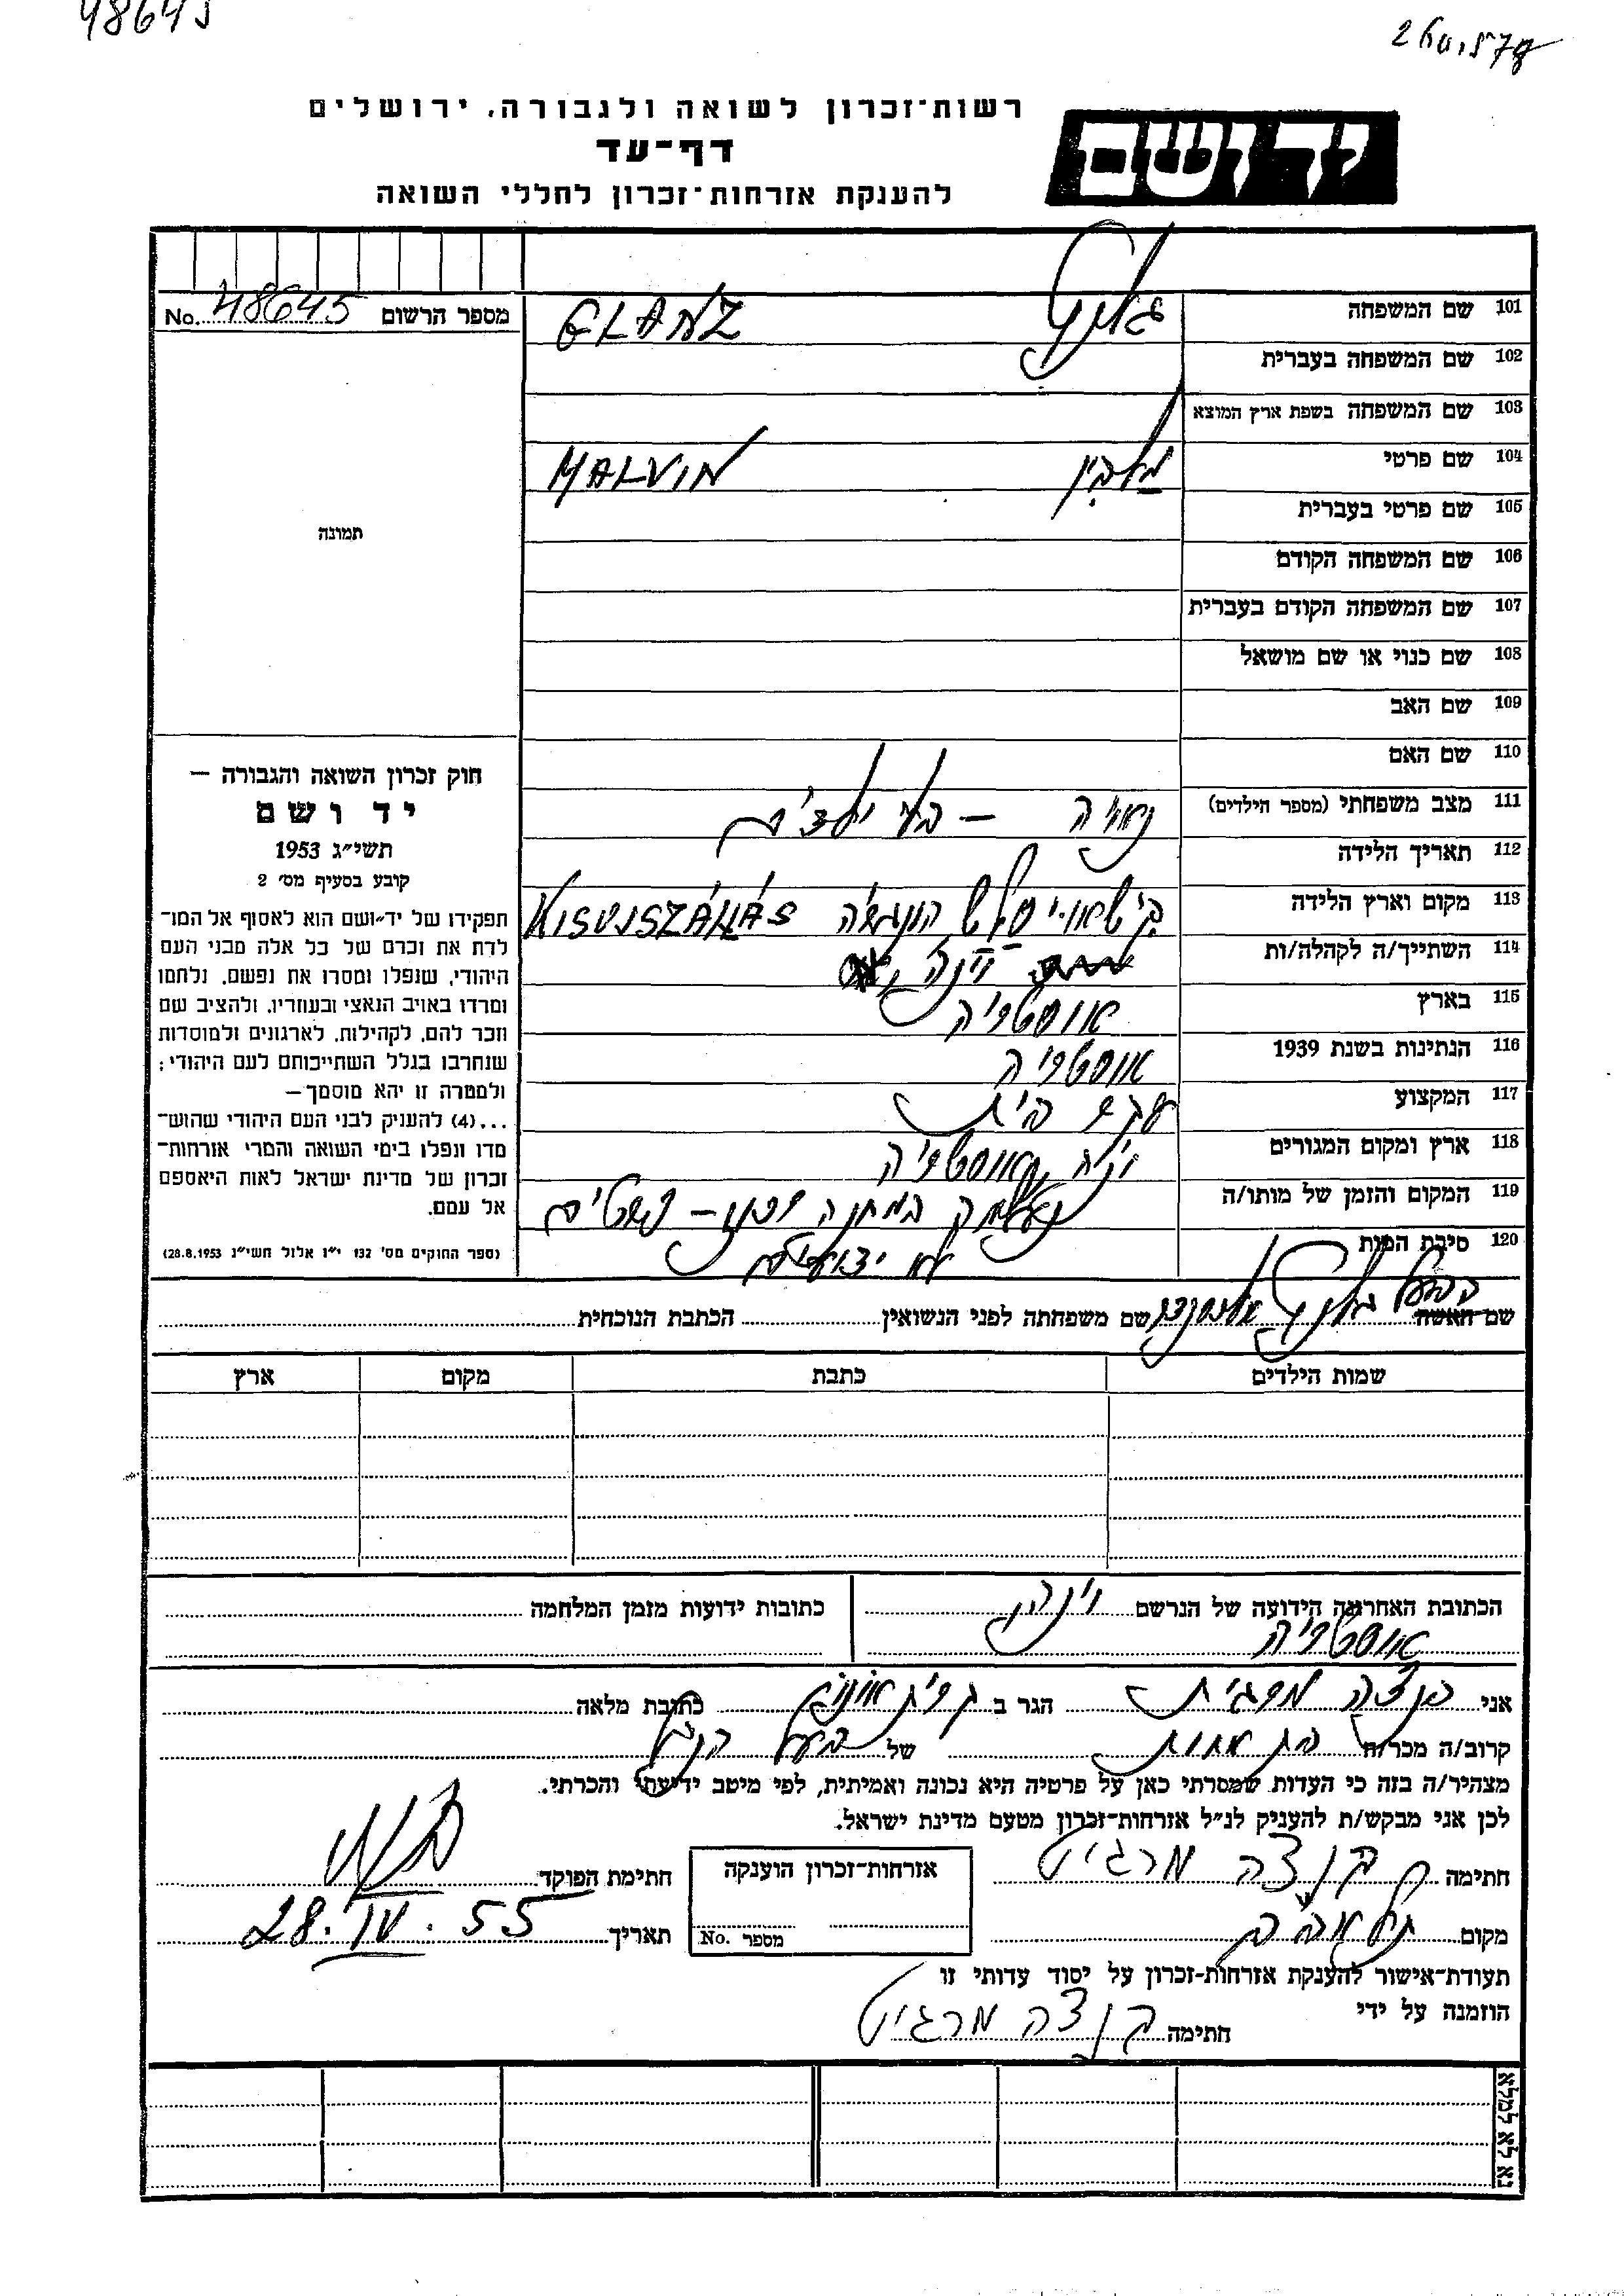 48645
רשות־זכרון לשואה ולגבורה, ירושלים
דף־עד
להענקת אזרחות־זכרון לחללי השואה
יד ושם
מספר הרשום No. 48645
תמונה
101 שם המשפחה גלנץ GLANZ
102 שם המשפחה בעברית
103 שם המשפחה בשפת ארץ המוצא
104 שם פרטי מַלבִין MALVIN
105 שם פרטי בעברית
106 שם המשפחה הקודם
107 שם המשפחה הקודם בעברית
108 שם כנוי או שם מושאל
109 שם האב
110 שם האם
111 מצב משפחתי (מספר הילדים) נשויה – בלי ילדים
112 תאריך הלידה
113 מקום וארץ הלידה הונגריה KISUJSZÁLÁS
114 השתייך/ה לקהלה/ות וינה
115 בארץ אוסטריה
116 הנתינות בשנת 1939 אוסטריה
117 המקצוע עקרת בית
118 ארץ ומקום המגורים וינה אוסטריה
119 המקום והזמן של מותו/ה נעלמה במחנה – פרטים
120 סיבת המות לא ידועים
חוק זכרון השואה והגבורה —
יד ושם
תשי״ג 1953
קובע בסעיף מס׳ 2
תפקידו של יד־ושם הוא לאסוף אל המו־
לדת את זכרם של כל אלה מבני העם
היהודי, שנפלו ומסרו את נפשם, נלחמו
ומרדו באויב הנאצי ובעוזריו, ולהציב שם
וזכר להם, לקהילות, לארגונים ולמוסדות
שנחרבו בגלל השתייכותם לעם היהודי;
ולמטרה זו יהא מוסמך —
...(4) להעניק לבני העם היהודי שהוש־
מדו ונפלו בימי השואה והמרי אזרחות־
זכרון של מדינת ישראל לאות היאספם
אל עמם.
(ספר החוקים מס׳ 132 י״ז אלול תשי״ג 28.8.1953)
שם האשה הבעל גלנץ אלכסנדר שם משפחתה לפני הנשואין הכתבת הנוכחית
שמות הילדים כתבת מקום ארץ
הכתובת האחרונה הידועה של הנרשם וינה, כתובות ידועות מזמן המלחמה
אוסטריה
אני בנצה מרגית הגר ב קרית אונו כתובת מלאה
קרוב/ה מכר/ה בת אחות של בעל הנ״ל
מצהיר/ה בזה כי העדות שמסרתי כאן על פרטיה היא נכונה ואמיתית, לפי מיטב ידיעתי והכרתי.
לכן אני מבקש/ת להעניק לנ״ל אזרחות־זכרון מטעם מדינת ישראל.
חתימה בנצה מרגיט אזרחות־זכרון הוענקה חתימת הפוקד
מקום תל אביב מספר No. תאריך 28. IV. 55
תעודת־אישור להענקת אזרחות־זכרון על יסוד עדותי זו
הוזמנה על ידי
חתימה בנצה מרגיט
נא לא למלא